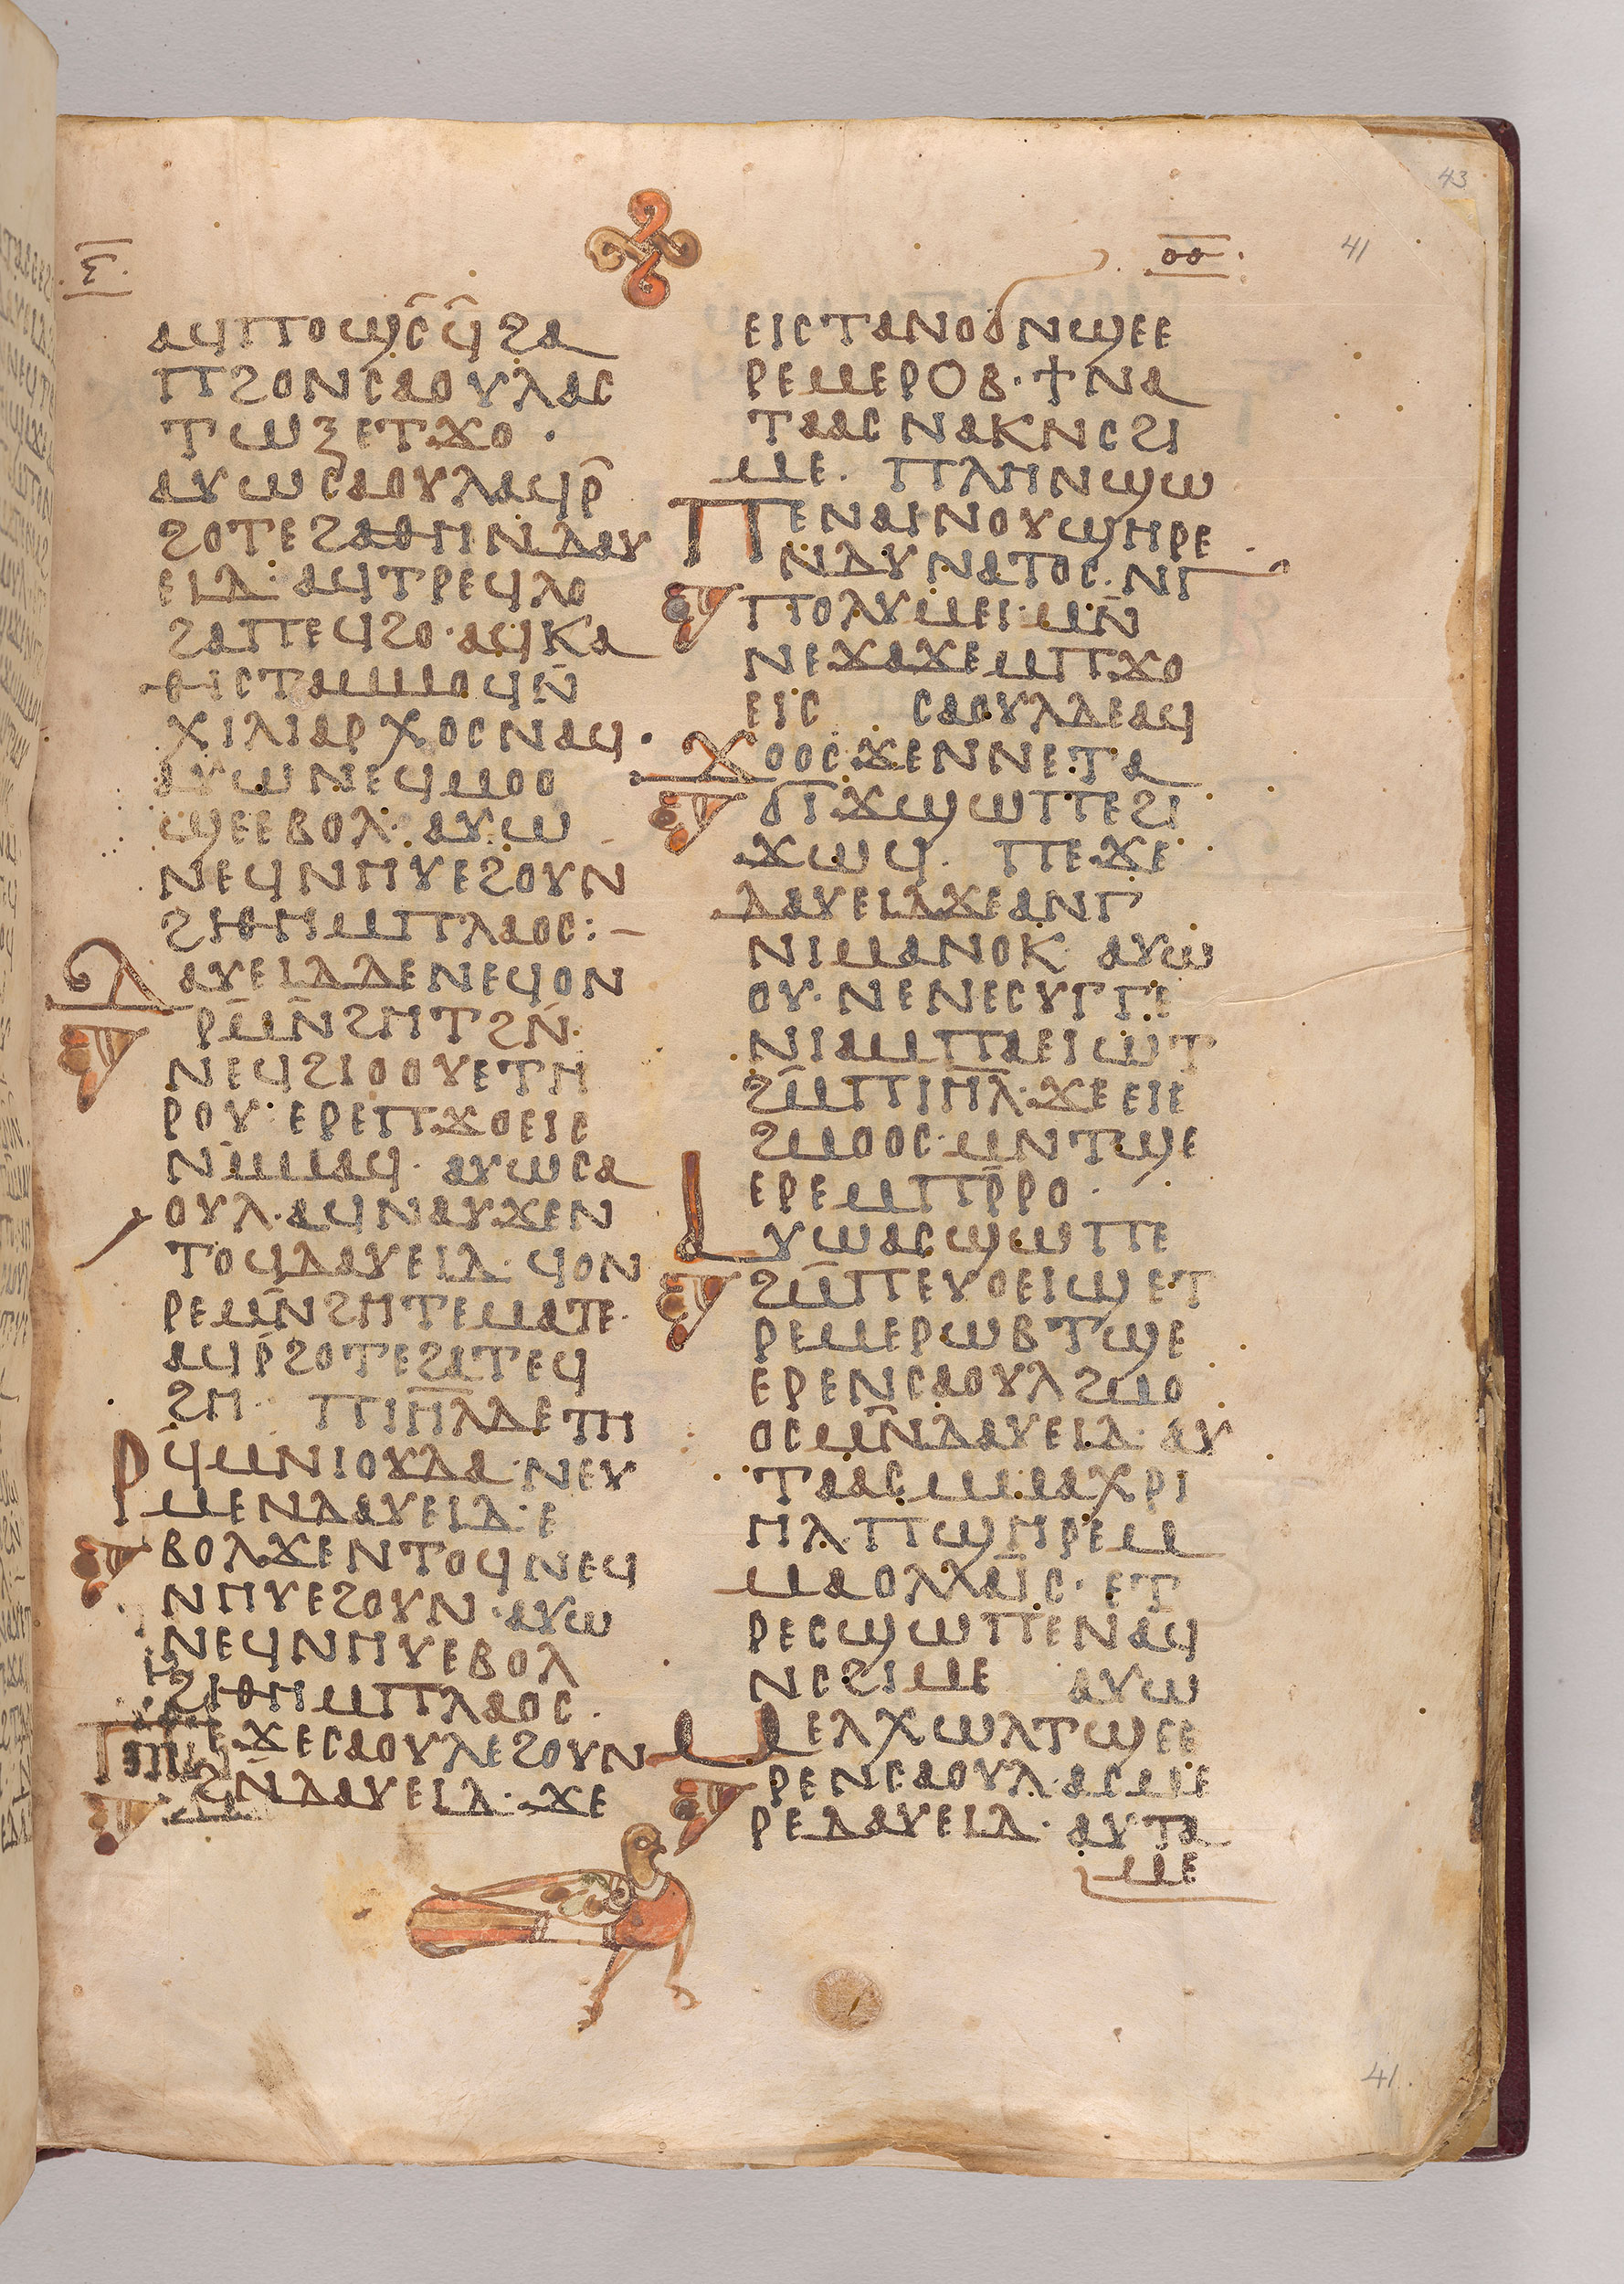 ⲉ̅
ⲟⲟ̅
43
41
ⲁϥⲡⲟϣⲥ̄ϥ̄ϩⲁ
ⲡϩⲟⲛⲥⲁⲟⲩⲗⲁⲥ
ⲧⲱⳅⲉⲧϫⲟ·
ⲁⲩⲱⲥⲁⲟⲩⲗⲁϥⲣ̄
ϩⲟⲧⲉϩⲁⲑⲏⲛⲇⲁⲩ
ⲉⲓⲇ· ⲁϥⲧⲣⲉϥⲗⲟ
ϩⲁⲡⲉϥϩⲟ·ⲁϥⲕⲁ
ⲑⲓⲥⲧⲁⲙⲙⲟϥⲛ̄
ⲭⲓⲗⲓⲁⲣⲭⲟⲥⲛⲁϥ·
ⲁⲩⲱⲛⲉϥⲙⲟⲟ
ϣⲉⲉⲃⲟⲗ· ⲁⲩⲱ
ⲛⲉϥⲛⲏⲩⲉϩⲟⲩⲛ
ϩⲓⲑⲏⲙⲡⲗⲁⲟⲥ:–
ⲇⲁⲩⲉⲓⲇⲇⲉⲛⲉϥⲟⲛ
ⲣⲙ̄ⲛ̄ϩⲏⲧϩⲛ̄·
ⲛⲉϥϩⲓⲟⲟⲩⲉⲧⲏ
ⲣⲟⲩ·ⲉⲣⲉⲡϫⲟⲉⲓⲥ
ⲛⲙ̄ⲙⲁϥ· ⲁⲩⲱⲥⲁ
ⲟⲩⲗ·ⲁϥⲛⲁⲩϫⲉⲛ
ⲧⲟϥⲇⲁⲩⲉⲓⲇ· ϥⲟⲛ
ⲣⲉⲙⲛ̄ϩⲏⲧⲉⲙⲁⲧⲉ·
ⲁϥⲣ̄ϩⲟⲧⲉϩⲁⲧⲉϥ
ϩⲏ· ⲡⲓⲏ̅ⲗⲇⲉⲧⲏ
ⲣϥ̄ⲙⲛⲓⲟⲩⲇⲁ·ⲛⲉⲩ
ⲙⲉⲛⲇⲁⲩⲉⲓⲇ·ⲉ
ⲃⲟⲗϫⲉⲛⲧⲟϥⲛⲉϥ
ⲛⲏⲩⲉϩⲟⲩⲛ·ⲁⲩⲱ
ⲛⲉϥⲛⲏⲩⲉⲃⲟⲗ
ϩⲓⲑⲏⲙⲡⲗⲁⲟⲥ·
ⲡⲉϫⲉⲥⲁⲟⲩⲗⲉϩⲟⲩⲛ
ϩⲛ̄ⲇⲁⲩⲉⲓⲇ·ϫⲉ
ⲉⲓⲥⲧⲁⲛⲟϭⲛϣⲉⲉ
ⲣⲉⲙⲉⲣⲟⲃ·ϯⲛⲁ
ⲧⲁⲁⲥⲛⲁⲕⲛⲥϩⲓ
ⲙⲉ· ⲡⲗⲏⲛϣⲱ
ⲡⲉⲛⲁⲓⲛⲟⲩϣⲏⲣⲉ
ⲛⲇⲩⲛⲁⲧⲟⲥ·ⲛⲅ
ⲡⲟⲗⲩⲙⲉⲓ·ⲙⲛ̄
ⲛⲉϫⲁϫⲉⲙⲡϫⲟ
ⲉⲓⲥ ⲥⲁⲟⲩⲗⲇⲉⲁϥ
ϫⲟⲟⲥϫⲉⲛⲛⲉⲧⲁ
ϭⲓϫϣⲱⲡⲉϩⲓ
ϫⲱϥ· ⲡⲉϫⲉ
ⲇⲁⲩⲉⲓⲇϫⲉⲁⲛⲅ
ⲛⲓⲙⲁⲛⲟⲕ· ⲁⲩⲱ
ⲟⲩ·ⲛⲉⲛⲉⲥⲩⲅⲅⲉ
ⲛⲓⲁⲙⲡⲁⲉⲓⲱⲧ
ϩⲙ̄ⲡⲓⲏ̅ⲗ·ϫⲉⲉⲓⲉ
ϩⲙⲟⲟⲥ·ⲙⲛⲧϣⲉ
ⲉⲣⲉⲙⲡⲣ̄ⲣⲟ·
ⲁⲩⲱⲁⲥϣⲱⲡⲉ
ϩⲙ̄ⲡⲉⲩⲟⲉⲓϣⲉⲧ
ⲣⲉⲙⲉⲣⲱⲃⲧϣⲉ
ⲉⲣⲉⲛⲥⲁⲟⲩⲗϩⲙⲟ
ⲟⲥⲙⲛ̄ⲇⲁⲩⲉⲓⲇ·ⲁⲩ
ⲧⲁⲁⲥⲙⲙⲁⲭⲣⲓ
ⲏⲗⲡϣⲏⲣⲉⲙ
ⲙⲁⲟⲗⲭⲁⲓ̈ⲥ·ⲉⲧ
ⲣⲉⲥϣⲱⲡⲉⲛⲁϥ
ⲛⲥϩⲓⲙⲉ ⲁⲩⲱ
ⲙⲉⲗⲭⲱⲗⲧϣⲉⲉ
ⲣⲉⲛⲥⲁⲟⲩⲗ·ⲁⲥⲙⲉ
ⲣⲉⲇⲁⲩⲉⲓⲇ· ⲁⲩⲧⲁ
ⲙⲉ
41.